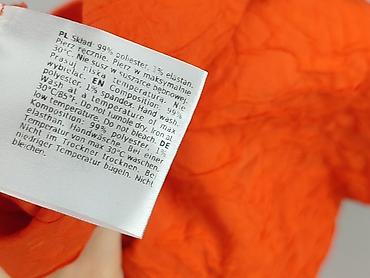 PL Skład: 99% poliester, 1% elastan.
Pierz ręcznie. Pierz w maksymalnie
30°C. Nie susz w suszarce bębnowej.
Prasuj niską temperaturą. Nie
wybielać. EN Composition: 99%
polyester, 1% spandex. Hand wash.
Wash at a temperature of max
30°C/85°F. Do not tumble dry. Iron at
low temperature. Do not bleach. DE
Komposition: 99% polyester, 1%
elasthan. Handwäsche. Bei einer
Temperatur von max 30°C waschen.
Nicht im Trockner trocknen. Bei
niedriger Temperatur bügeln. Nicht
bleichen.